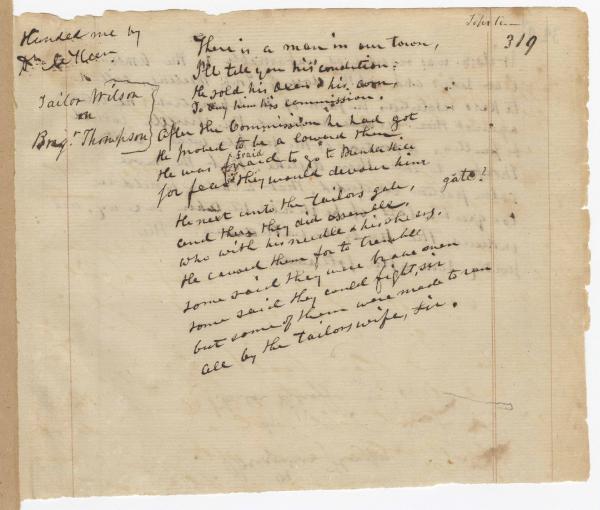 319
Handed me by
Tailor Wilson
on
Brigr Thompson
There is a man in our town,
I'll tell you his condition;
He sold his oxen & his corn,
To buy him his commission.
After the Commission he had got
He proved to be a coward then.
He was fraid to go to Bunker Hill
fraid
for fear they would devour him
He next unto the tailors gate, gate?
and there they did assemble,
who with his needle & his shears.
He caused them for to tremble
some said they were brave men
some said they could fight, sir
but some of them were made to run
all by the tailors wife, sir.